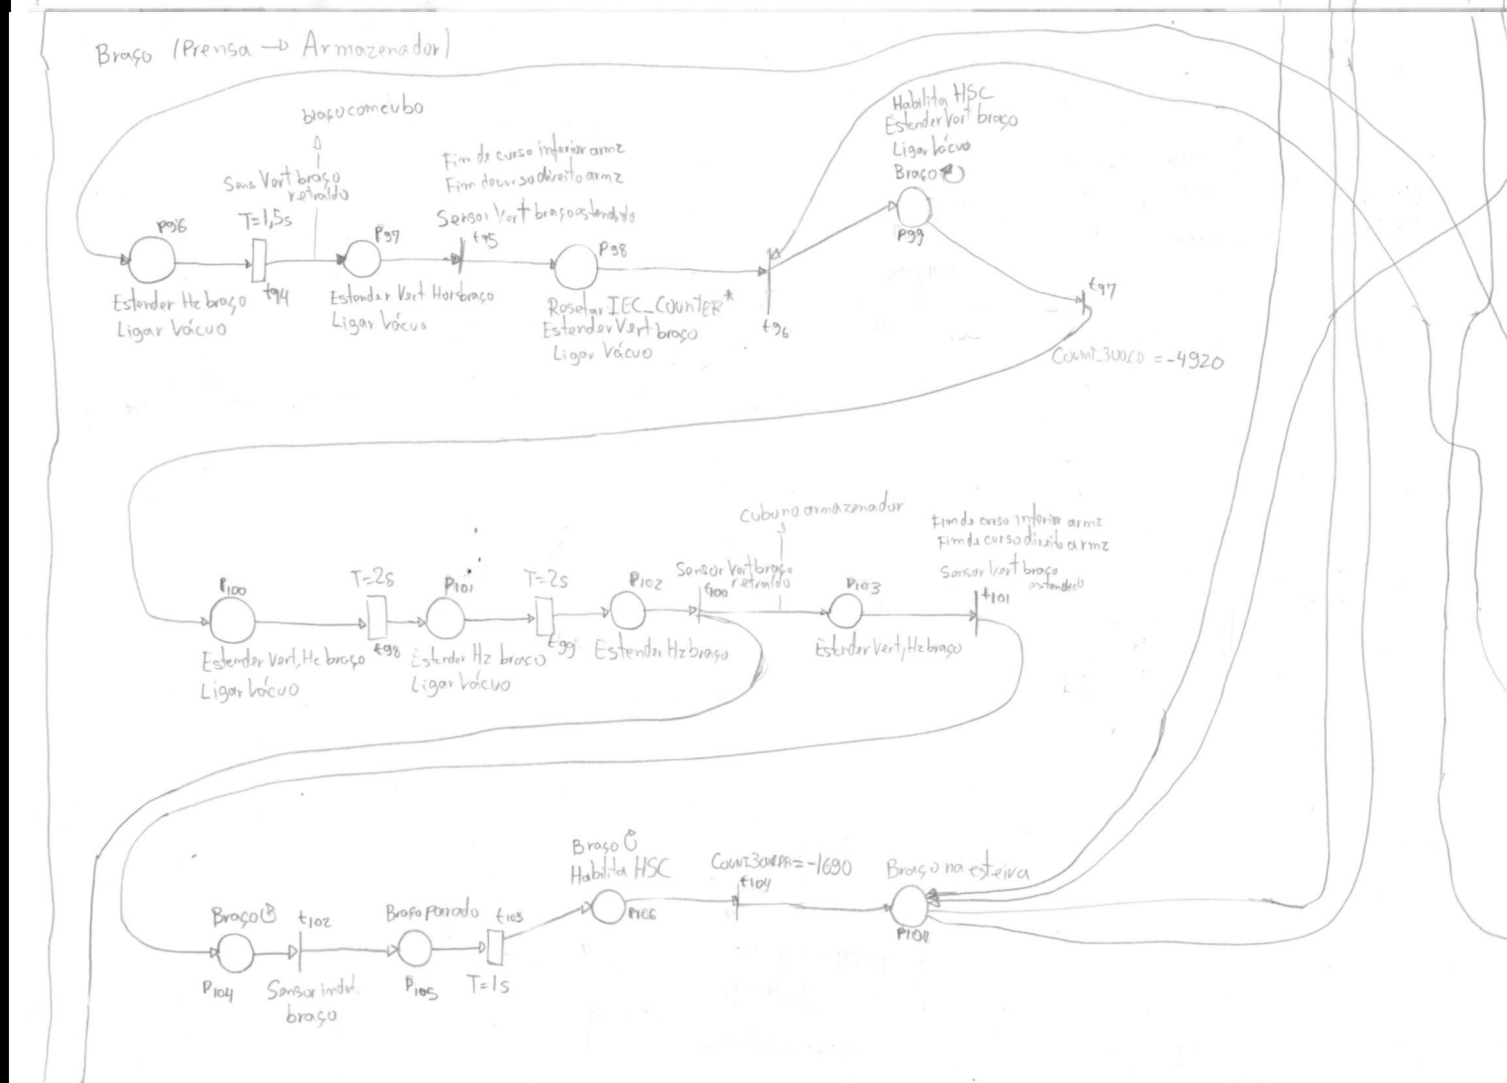 Braço (Prensa → Armazenador)
braço com cubo
Sens Vert braço
retraído
T=1,5s
P96
t94
Estender Hz braço
Ligar Vácuo
P97
Estender Vert braço
Ligar Vácuo
Fim de curso inferior armz
Fim de curso direito armz
Sensor Vert braço estendido
t95
P98
Resetar IEC_COUNTER*
Estender Vert braço
Ligar Vácuo
t96
Habilita HSC
Estender Vert braço
Ligar Vácuo
Braço
P99
t97
= -4920
P100
Estender Vert, Hz braço
Ligar Vácuo
T=2s
t98
P101
Estender Hz braço
Ligar Vácuo
T=2s
t99
P102
Estender Hz braço
Sensor Vert braço
retraído
t100
cubo no armazenador
P103
Estender Vert, Hz braço
Fim de curso inferior armz
Fim de curso direito armz
Sensor Vert braço
estendido
t101
Braço
P104
t102
Sensor indut.
braço
Braço parado
P105
t103
T=1s
Braço
Habilita HSC
P106
= -1690
t104
Braço na esteira